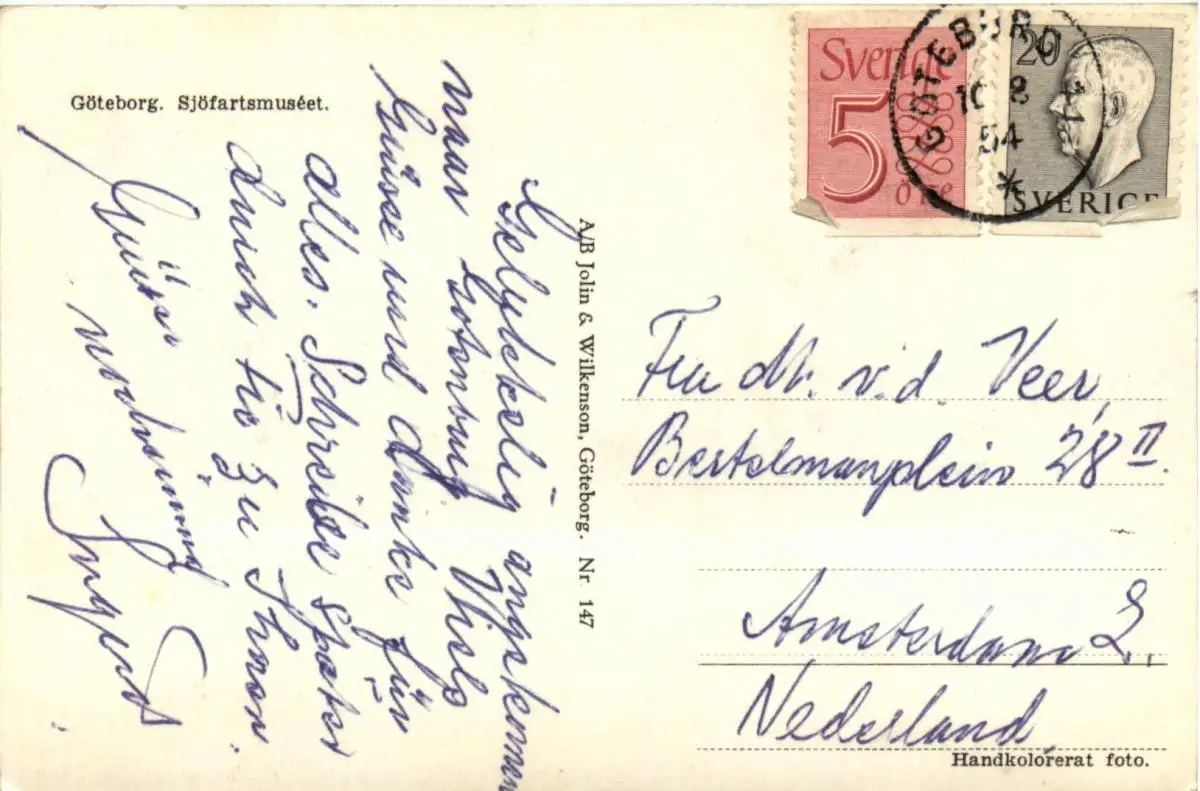 Göteborg. Sjöfartsmuséet.
Gelyckelig angekommen
naar Gotenburg Viele
Grüsse und danke für
alles. Schreibe später
zu
Grüsse
Ingrid
A/B Jolin & Wilkenson, Göteborg. Nr 147
Sverige
5
öre
20
SVERIGE
GÖTEBORG 1
10 8
54
*
Fru dr. v.d. Veer,
Bertelmanplein 28 II.
Amsterdam Z.,
Nederland
Handkolorerat foto.